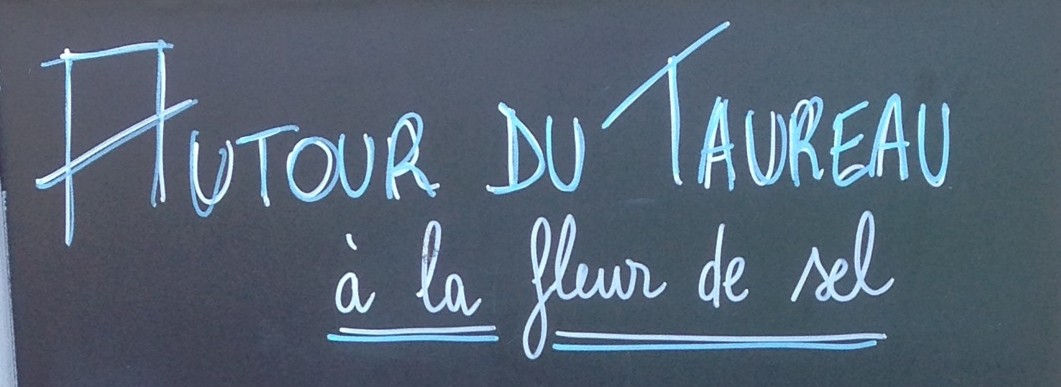 AUTOUR DU TAUREAU
à la fleur de sel